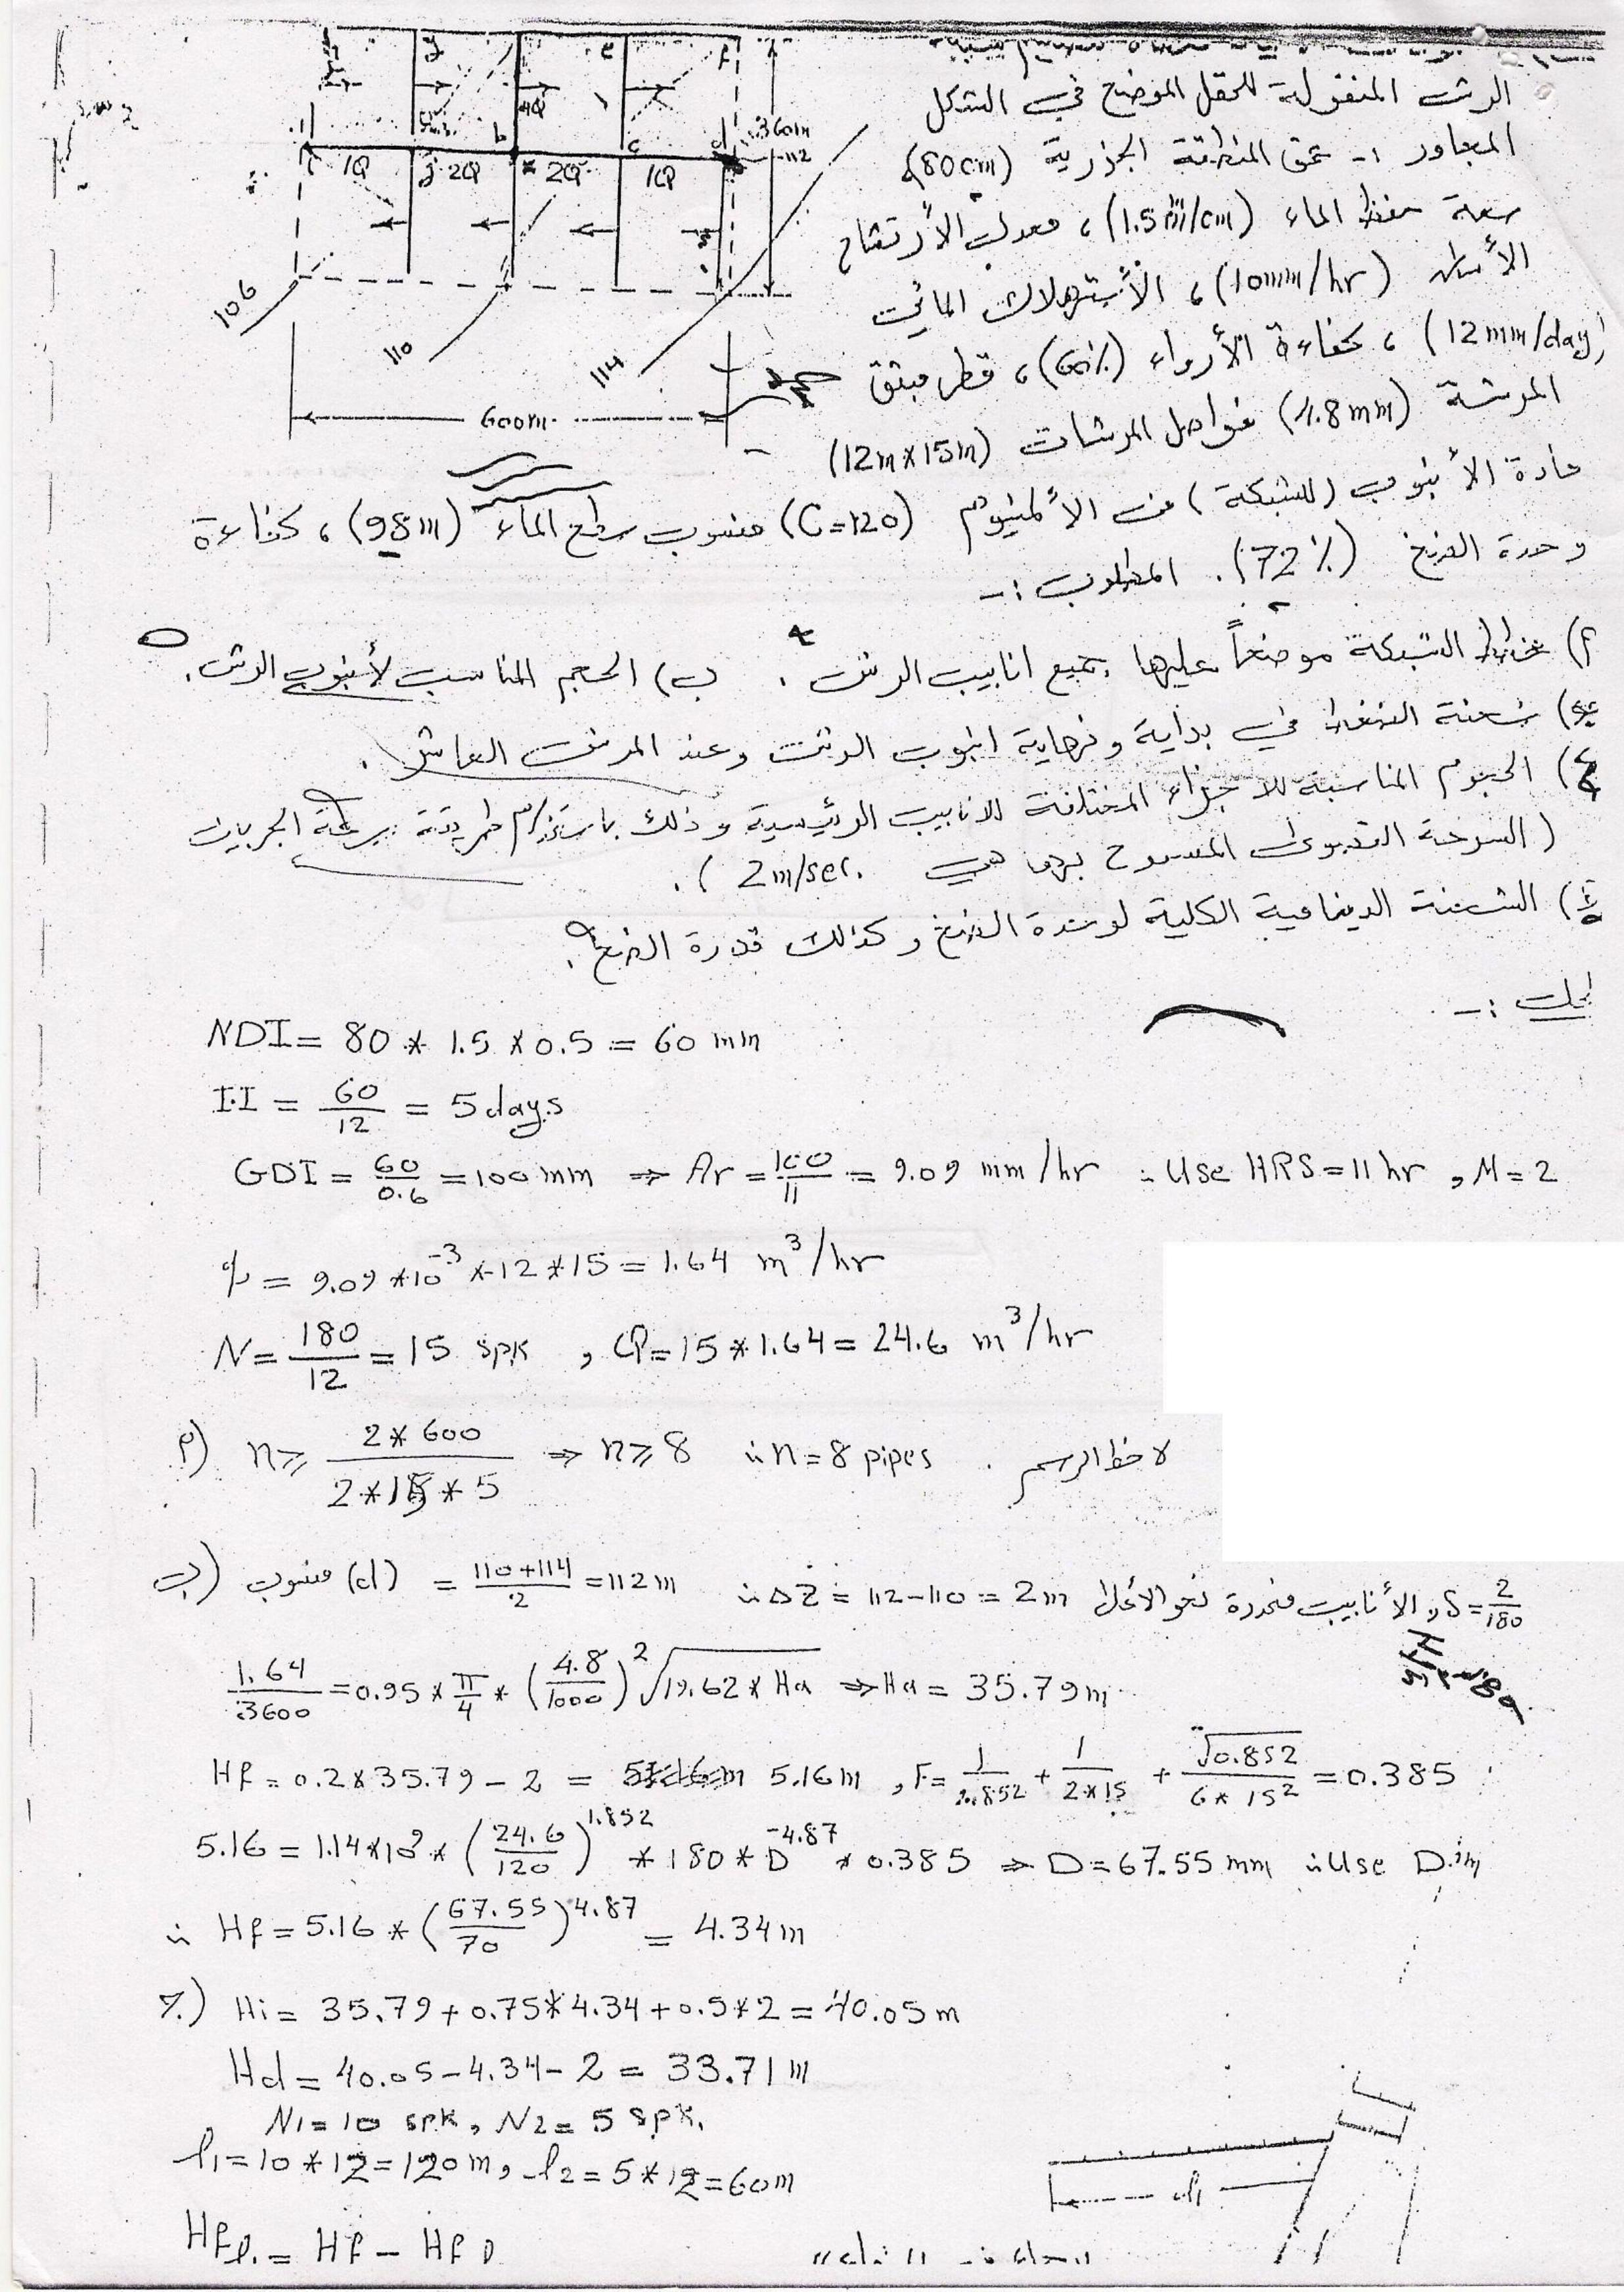 الرش المنقولة للحقل الموضح في الشكل
المجاور :- عمق المنطقة الجذرية (80cm)
سعة حفظ الماء (1.5mm/cm)، معدل الأرتشاح
الأساس (10mm/hr)، الأستهلاك المائي
(12mm/day)، كفاءة الأرواء (60%)، قطر مبثق
المرشة (4.8mm) فواصل المرشات (12m*15m)
مادة الأنبوب (للشبكة) من الألمنيوم (C=120) منسوب سطح الماء (98m)، كفاءة
وحدة الضخ (72%). المطلوب :-
f
e
4Q
b
c
d
360m
112
1Q
j 2Q
2Q
1Q
106
110
114
600m
أ) مخطط الشبكة موضحاً عليها جميع انابيب الرش. ب) الحجم المناسب لأنبوب الرش.
شحنة الضغط في بداية ونهاية انبوب الرش وعند المرش العاشر.
الحجوم المناسبة للاجزاء المختلفة للانابيب الرئيسية وذلك باستخدام طريقة سرعة الجريان
(السرعة القصوى المسموح بها هي 2m/sec.).
الشحنة الدينامية الكلية لوحدة الضخ وكذلك قدرة الضخ.
الحل :-
NDI = 80 * 1.5 * 0.5 = 60 mm
I.I = 60/12 = 5 days
GDI = 60/0.6 = 100 mm ⇒ Ar = 100/11 = 9.09 mm/hr ∴ Use HRS = 11 hr , M = 2
q = 9.09 * 10^-3 * 12 * 15 = 1.64 m^3/hr
N = 180/12 = 15 spk , Q = 15 * 1.64 = 24.6 m^3/hr
أ) n ≥ 2*600/2*15*5 ⇒ n ≥ 8 ∴ n = 8 pipes . لاحظ الرسم
ب) منسوب (d) = 110+114/2 = 112 m ∴ ΔZ = 112-110 = 2m الأنابيب منحدرة نحو الأعلى و S = 2/180
1.64/3600 = 0.95 * π/4 * (4.8/1000)^2 √19.62*Ha ⇒ Ha = 35.79 m
Hf = 0.2*35.79 - 2 = 5.16 m , F = 1/2.852 + 1/2*15 + √0.852/6*15^2 = 0.385
5.16 = 1.14*10^9 * (24.6/120)^1.852 * 180 * D^-4.87 * 0.385 ⇒ D = 67.55 mm ∴ Use D
∴ Hf = 5.16 * (67.55/70)^4.87 = 4.34 m
Hi = 35.79 + 0.75*4.34 + 0.5*2 = 40.05 m
Hd = 40.05 - 4.34 - 2 = 33.71 m
N1 = 10 spk , N2 = 5 spk.
l1 = 10*12 = 120 m , l2 = 5*12 = 60m
l1
Hf = Hf - Hf